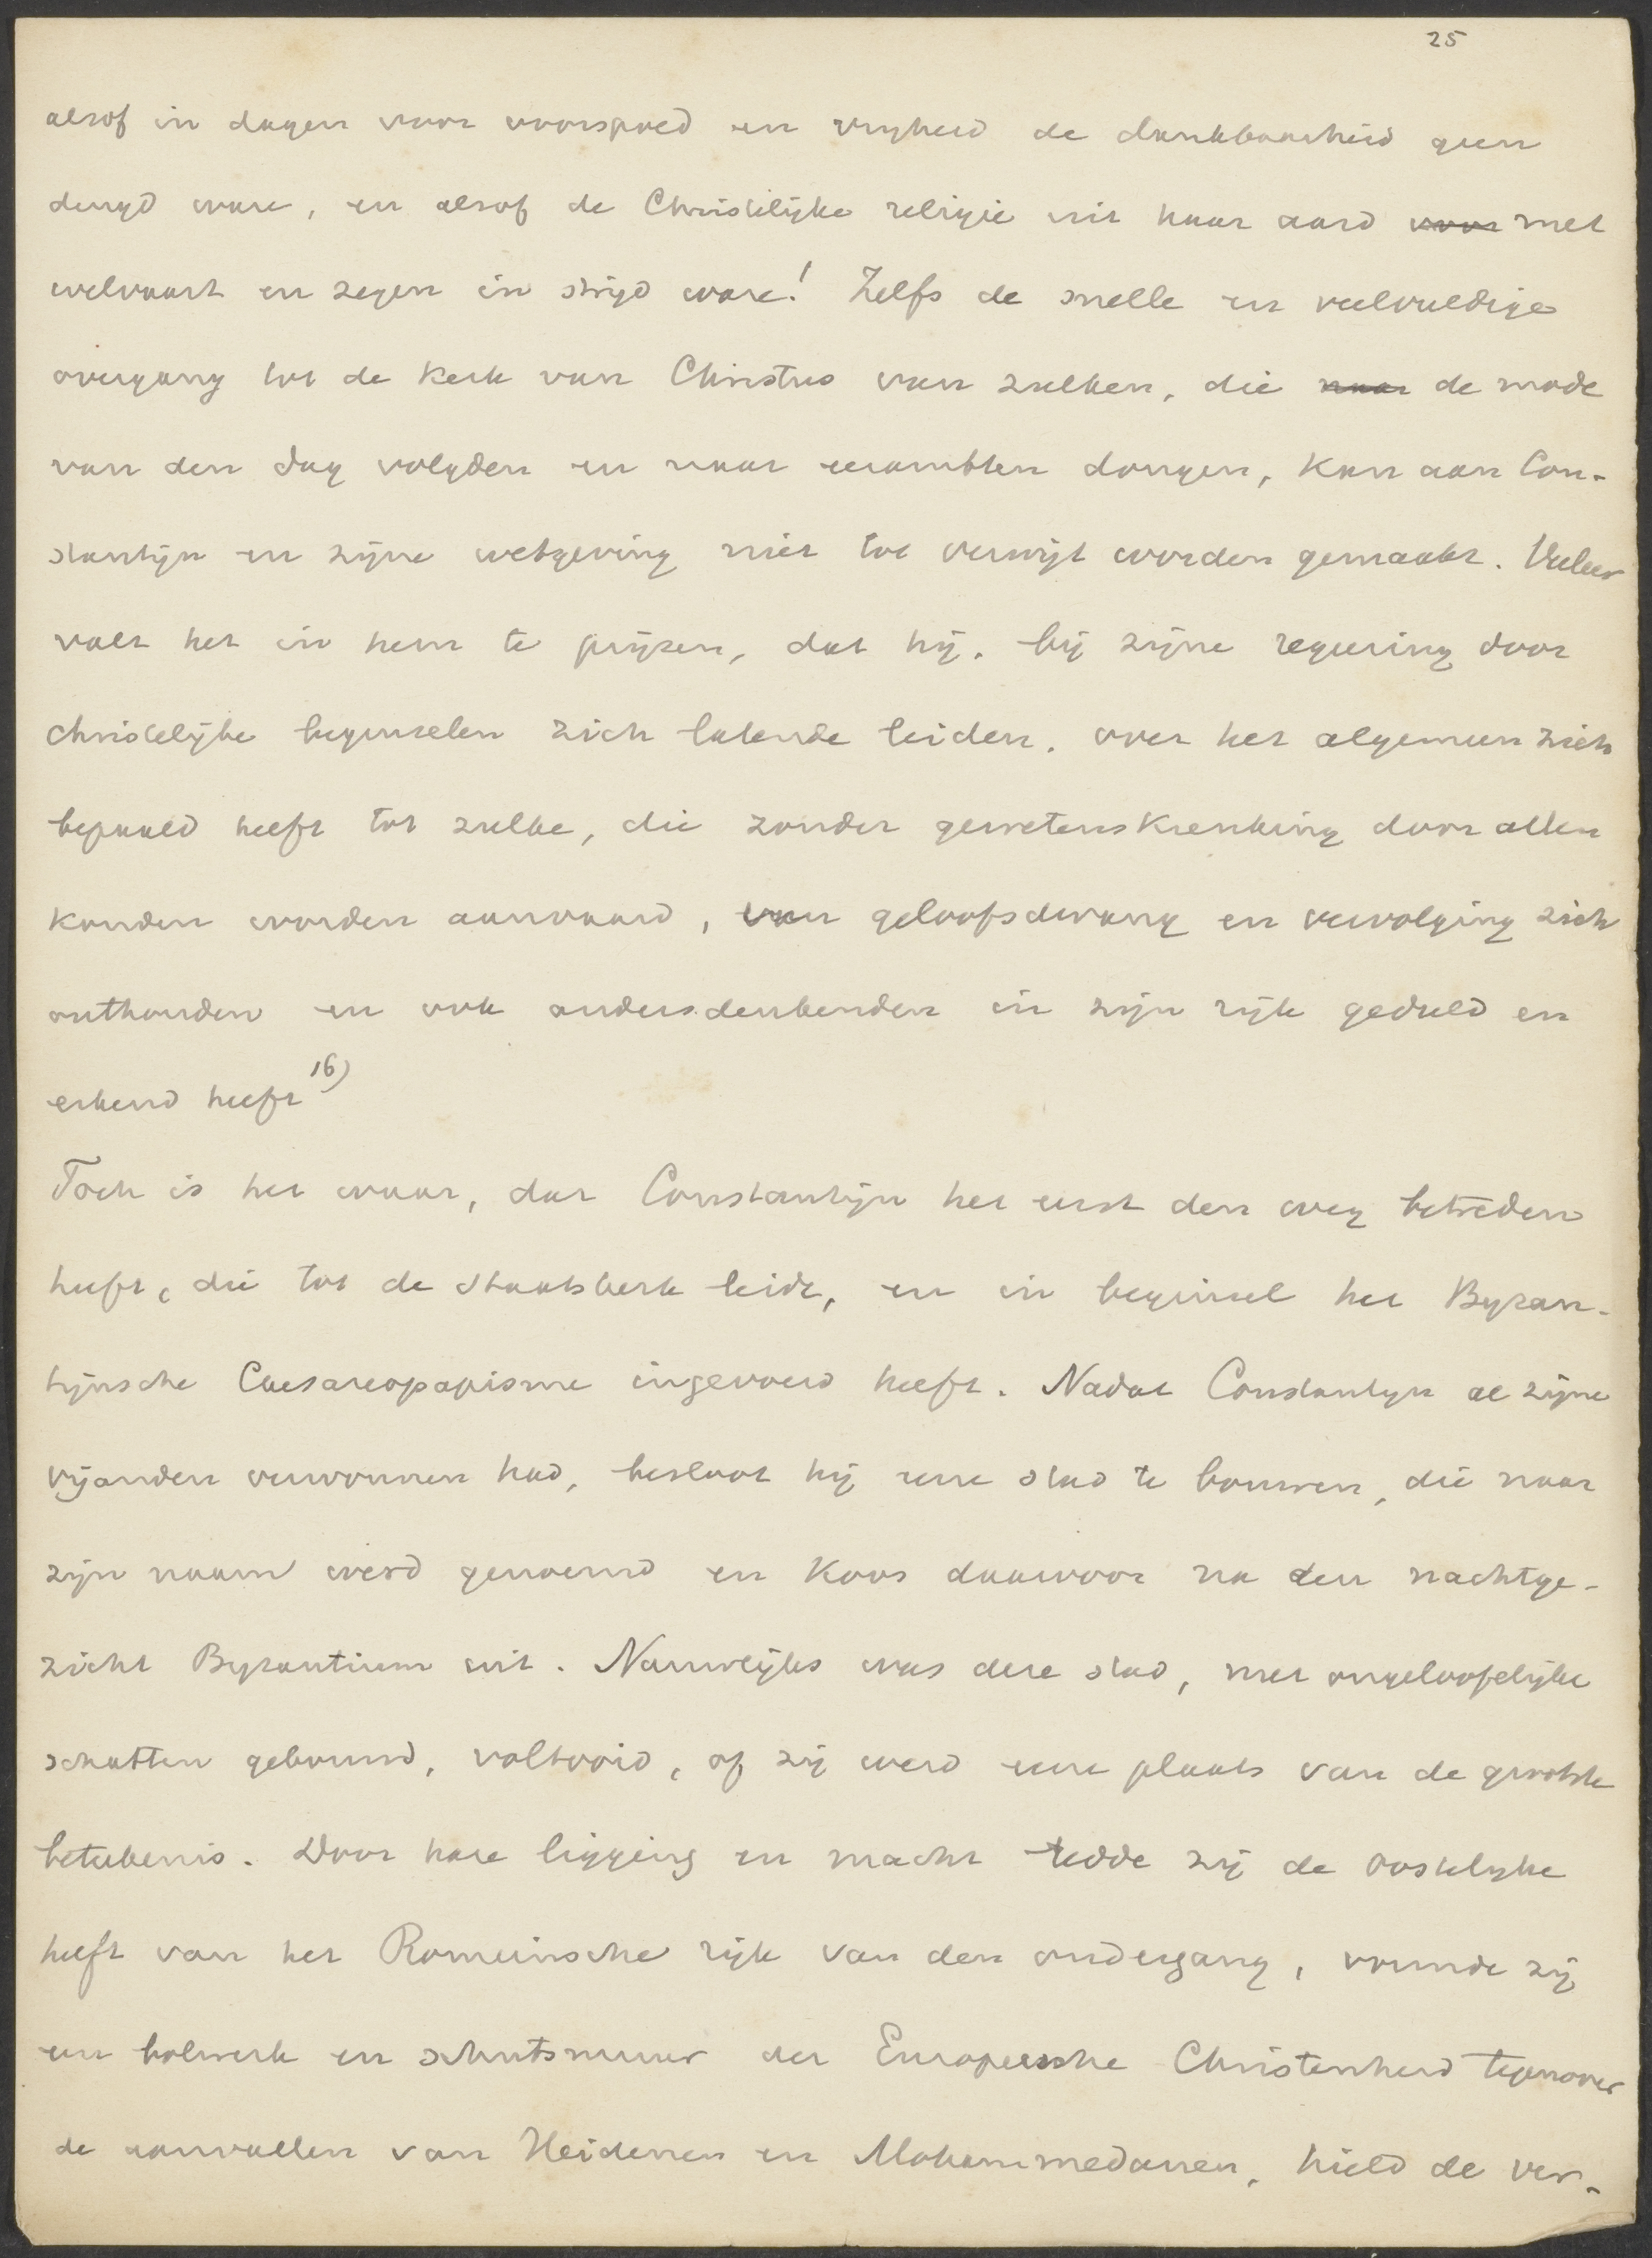 25
alsof in dagen voor voorspoed en vrijheid de dankbaarheid geen
deugd ware, en alsof de Christelijke religie uit haar aard voor met
welvaart en zegen in strijd ware! Zelfs de snelle en veelvuldige
overgang tot de Kerk van Christus van zulken, die naar de mode
van den dag volgden en naar eerambten dongen, kan aan Con-
stantijn en zijne wetgeving niet tot verwijt worden gemaakt. Veeleer
valt het in hem te prijzen, dat hij, bij zijne regeering door
christelijke beginselen zich latende leiden, over het algemeen zich
bepaald heeft tot zulke, die zonder gewetenskrenking door allen
konden worden aanvaard, van geloofsdwang en vervolging zich
onthouden en ook andersdenkenden in zijn rijk geduld en
erkend heeft 16)
Toch is het waar, dat Constantijn het eerst den weg betreden
heeft, die tot de staatskerk leidt, en in beginsel het Byzan-
tijnsche Caesareopapisme ingevoerd heeft. Nadat Constantijn al zijne
vijanden verwonnen had, besloot hij eene stad te bouwen, die naar
zijn naam werd genoemd en koos daarvoor na een nachtge-
zicht Byzantium uit. Nauwelijks was deze stad, met ongeloofelijke
schatten gebouwd, voltooid, of zij werd eene plaats van de grootste
beteekenis. Door hare ligging en macht redde zij de Oostelijke
helft van het Romeinsche rijk van den ondergang, vormde zij
een bolwerk en schutsmuur der Europeesche Christenheid tegenover
de aanvallen van Heidenen en Mohammedanen, hield de ver-